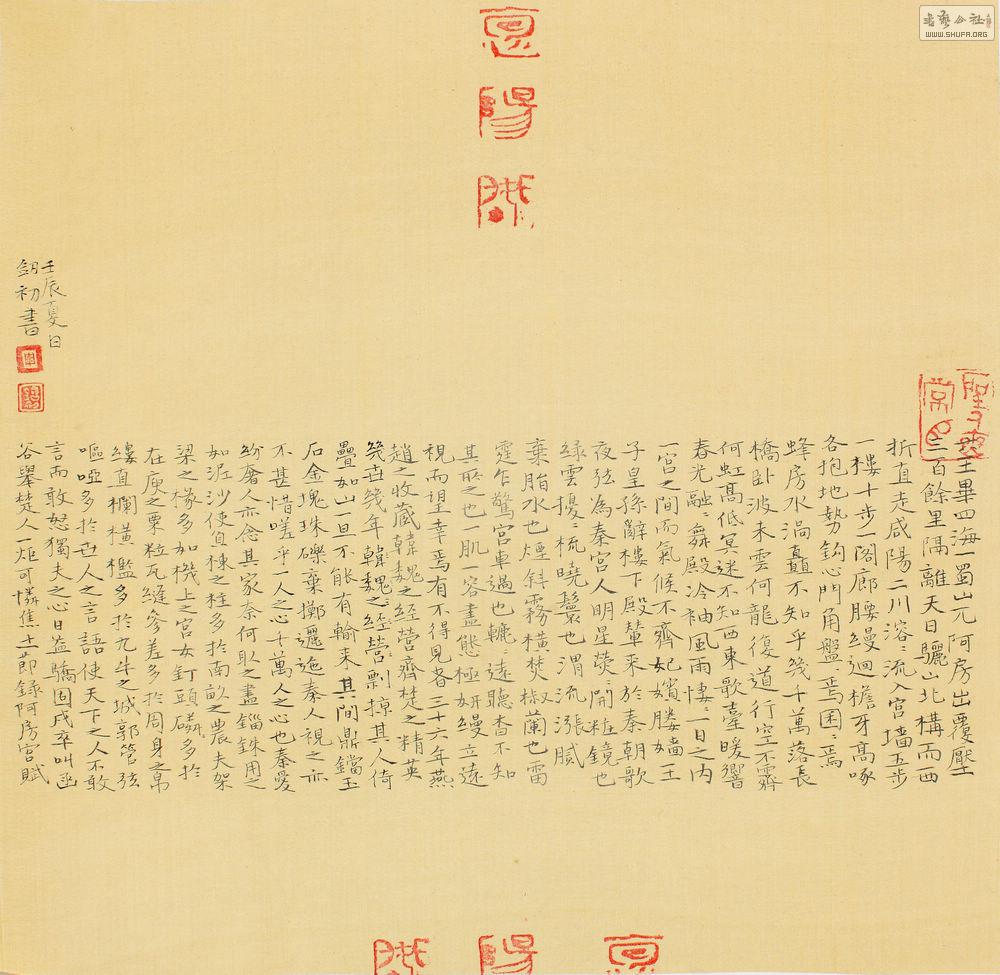 六王畢四海一蜀山兀阿房出覆壓
三百餘里隔離天日驪山北構而西
折直走咸陽二川溶〻流入宮墻五步
一樓十步一閣廊腰縵迴檐牙高啄
各抱地勢鉤心鬥角盤〻焉囷〻焉
蜂房水渦矗不知乎幾千萬落長
橋卧波未雲何龍復道行空不霽
何虹高低冥迷不知西東歌臺暖響
春光融〻舞殿冷袖風雨悽〻一日之內
一宮之間而氣候不齊妃嬪媵嬙王
子皇孫辭樓下殿輦來於秦朝歌
夜弦為秦宮人明星熒〻開粧鏡也
緑雲擾〻梳曉鬟也渭流漲膩
棄脂水也煙斜霧橫焚椒蘭也雷
霆乍驚宮車過也轆〻遠聽杳不知
其所之也一肌一容盡態極妍縵立遠
視而望幸焉有不得見者三十六年燕
趙之收藏韓魏之經營齊楚之精英
幾世幾年韓魏之經營剽掠其人倚
疊如山一旦不能有輸來其間鼎鐺玉
石金塊珠礫棄擲邐迤秦人視之亦
不甚惜嗟乎一人之心千萬人之心也秦愛
紛奢人亦念其家奈何取之盡錙銖用之
如泥沙使負棟之柱多於南畝之農夫架
梁之椽多如機上之宮女釘頭磷多於
在庾之粟粒瓦縫參差多於周身之帛
縷直欄橫檻多於九土之城郭管弦
嘔啞多於世人之言語使天下之人不敢
言而敢怒獨夫之心日益驕固戍卒叫函
谷舉楚人一炬可憐焦土節錄阿房宮賦
壬辰夏日
劒初書
書藝公社
WWW.SHUFA.ORG